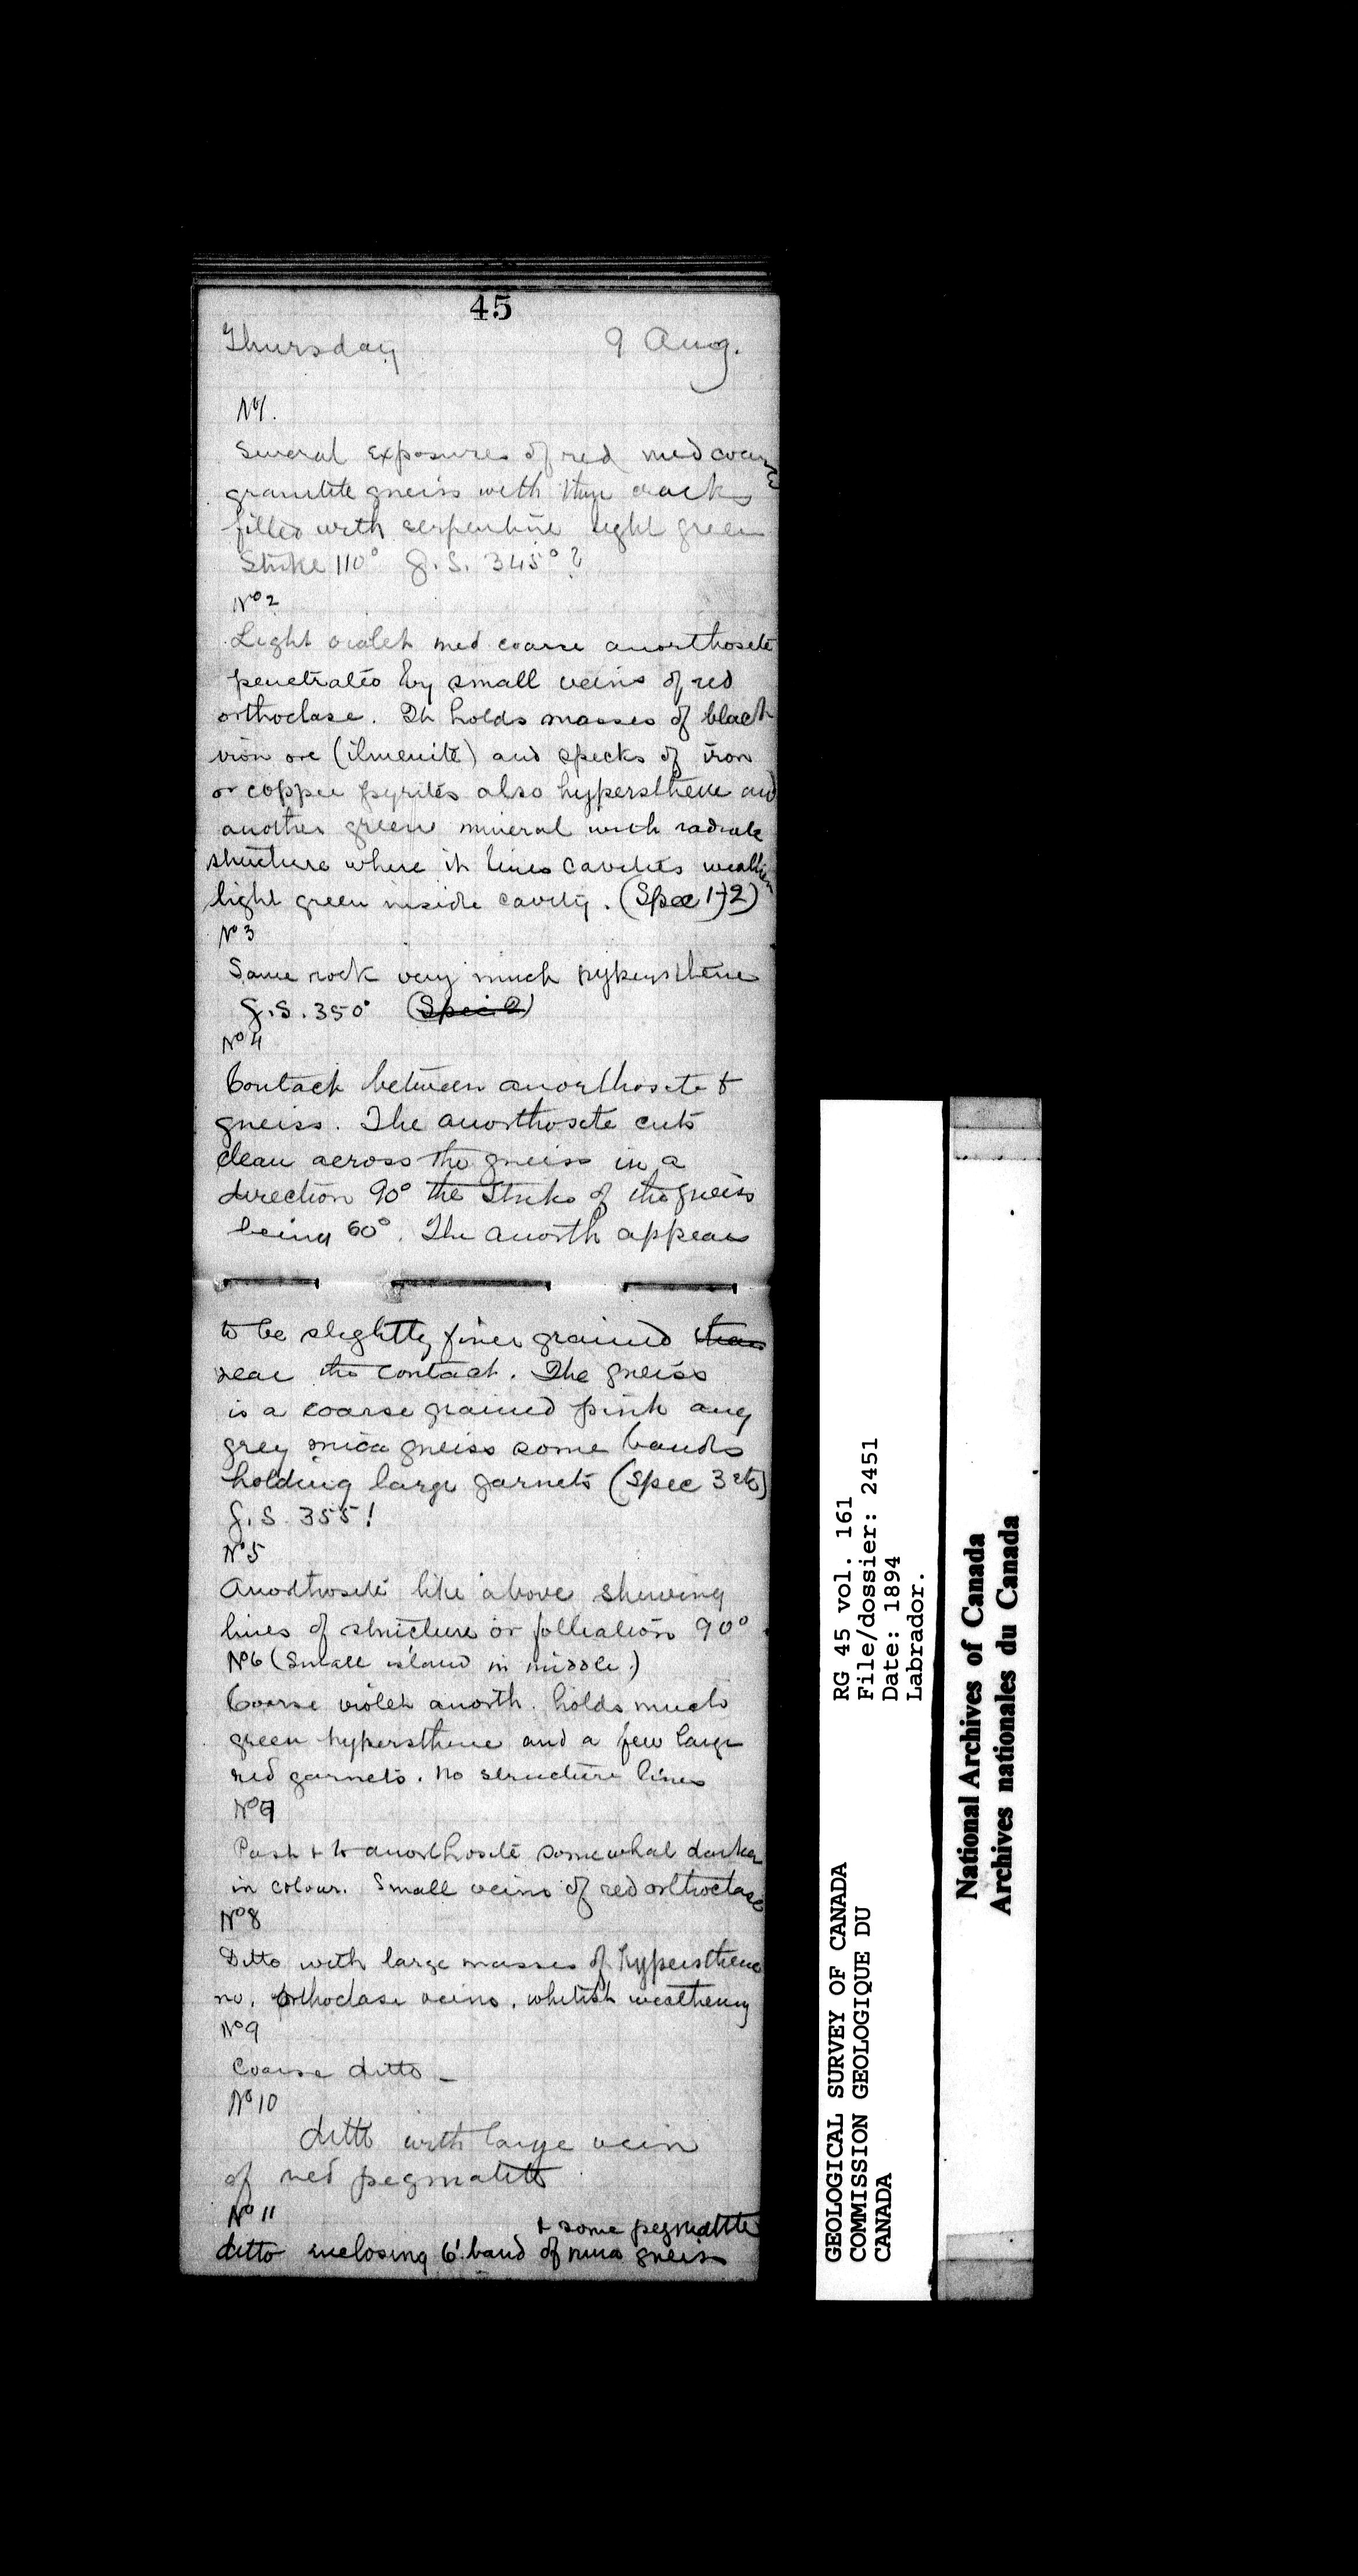 45
Thursday 9 Aug.
No 1.
Several exposures of red med coarse
granitite gneiss with thin cracks
filled with serpentine light green
Strike 110° G.S. 345°?
No 2
Light violet med coarse anorthosite
penetrated by small veins of red
orthoclase. It holds masses of black
iron ore (ilmenite) and specks of iron
or copper pyrites also hypersthene and
another green mineral with radiate
structure where it lines cavities weathers
light green inside cavity. (Spec 1+2)
No 3
Same rock very much hypersthene
G.S. 350° (Spec 2)
No 4
Contact between anorthosite &
gneiss. The anorthosite cuts
clean across the gneiss in a
direction 90° the strike of the gneiss
being 60°. The anorth appears
to be slightly finer grained than
near the contact. The gneiss
is a coarse grained pink and
grey mica gneiss some bands
holding large garnets (Spec 3 etc)
G.S. 355!
No 5
Anorthosite like above shewing
lines of structure or foliation 90°
No 6 (Small island in middle.)
Coarse violet anorth. holds much
green hypersthene and a few large
red garnets. No structure lines
No 7
anorthosite somewhat darker
in colour. Small veins of red orthoclase
No 8
Ditto with large masses of hypersthene
no. orthoclase veins. whitish weathering
No 9
Coarse ditto -
No 10
ditto with large vein
of red pegmatite
No 11
& some pegmatite
ditto enclosing 6' band of mica gneiss
GEOLOGICAL SURVEY OF CANADA
COMMISSION GEOLOGIQUE DU
CANADA
RG 45 vol. 161
File/dossier: 2451
Date: 1894
Labrador.
National Archives of Canada
Archives nationales du Canada